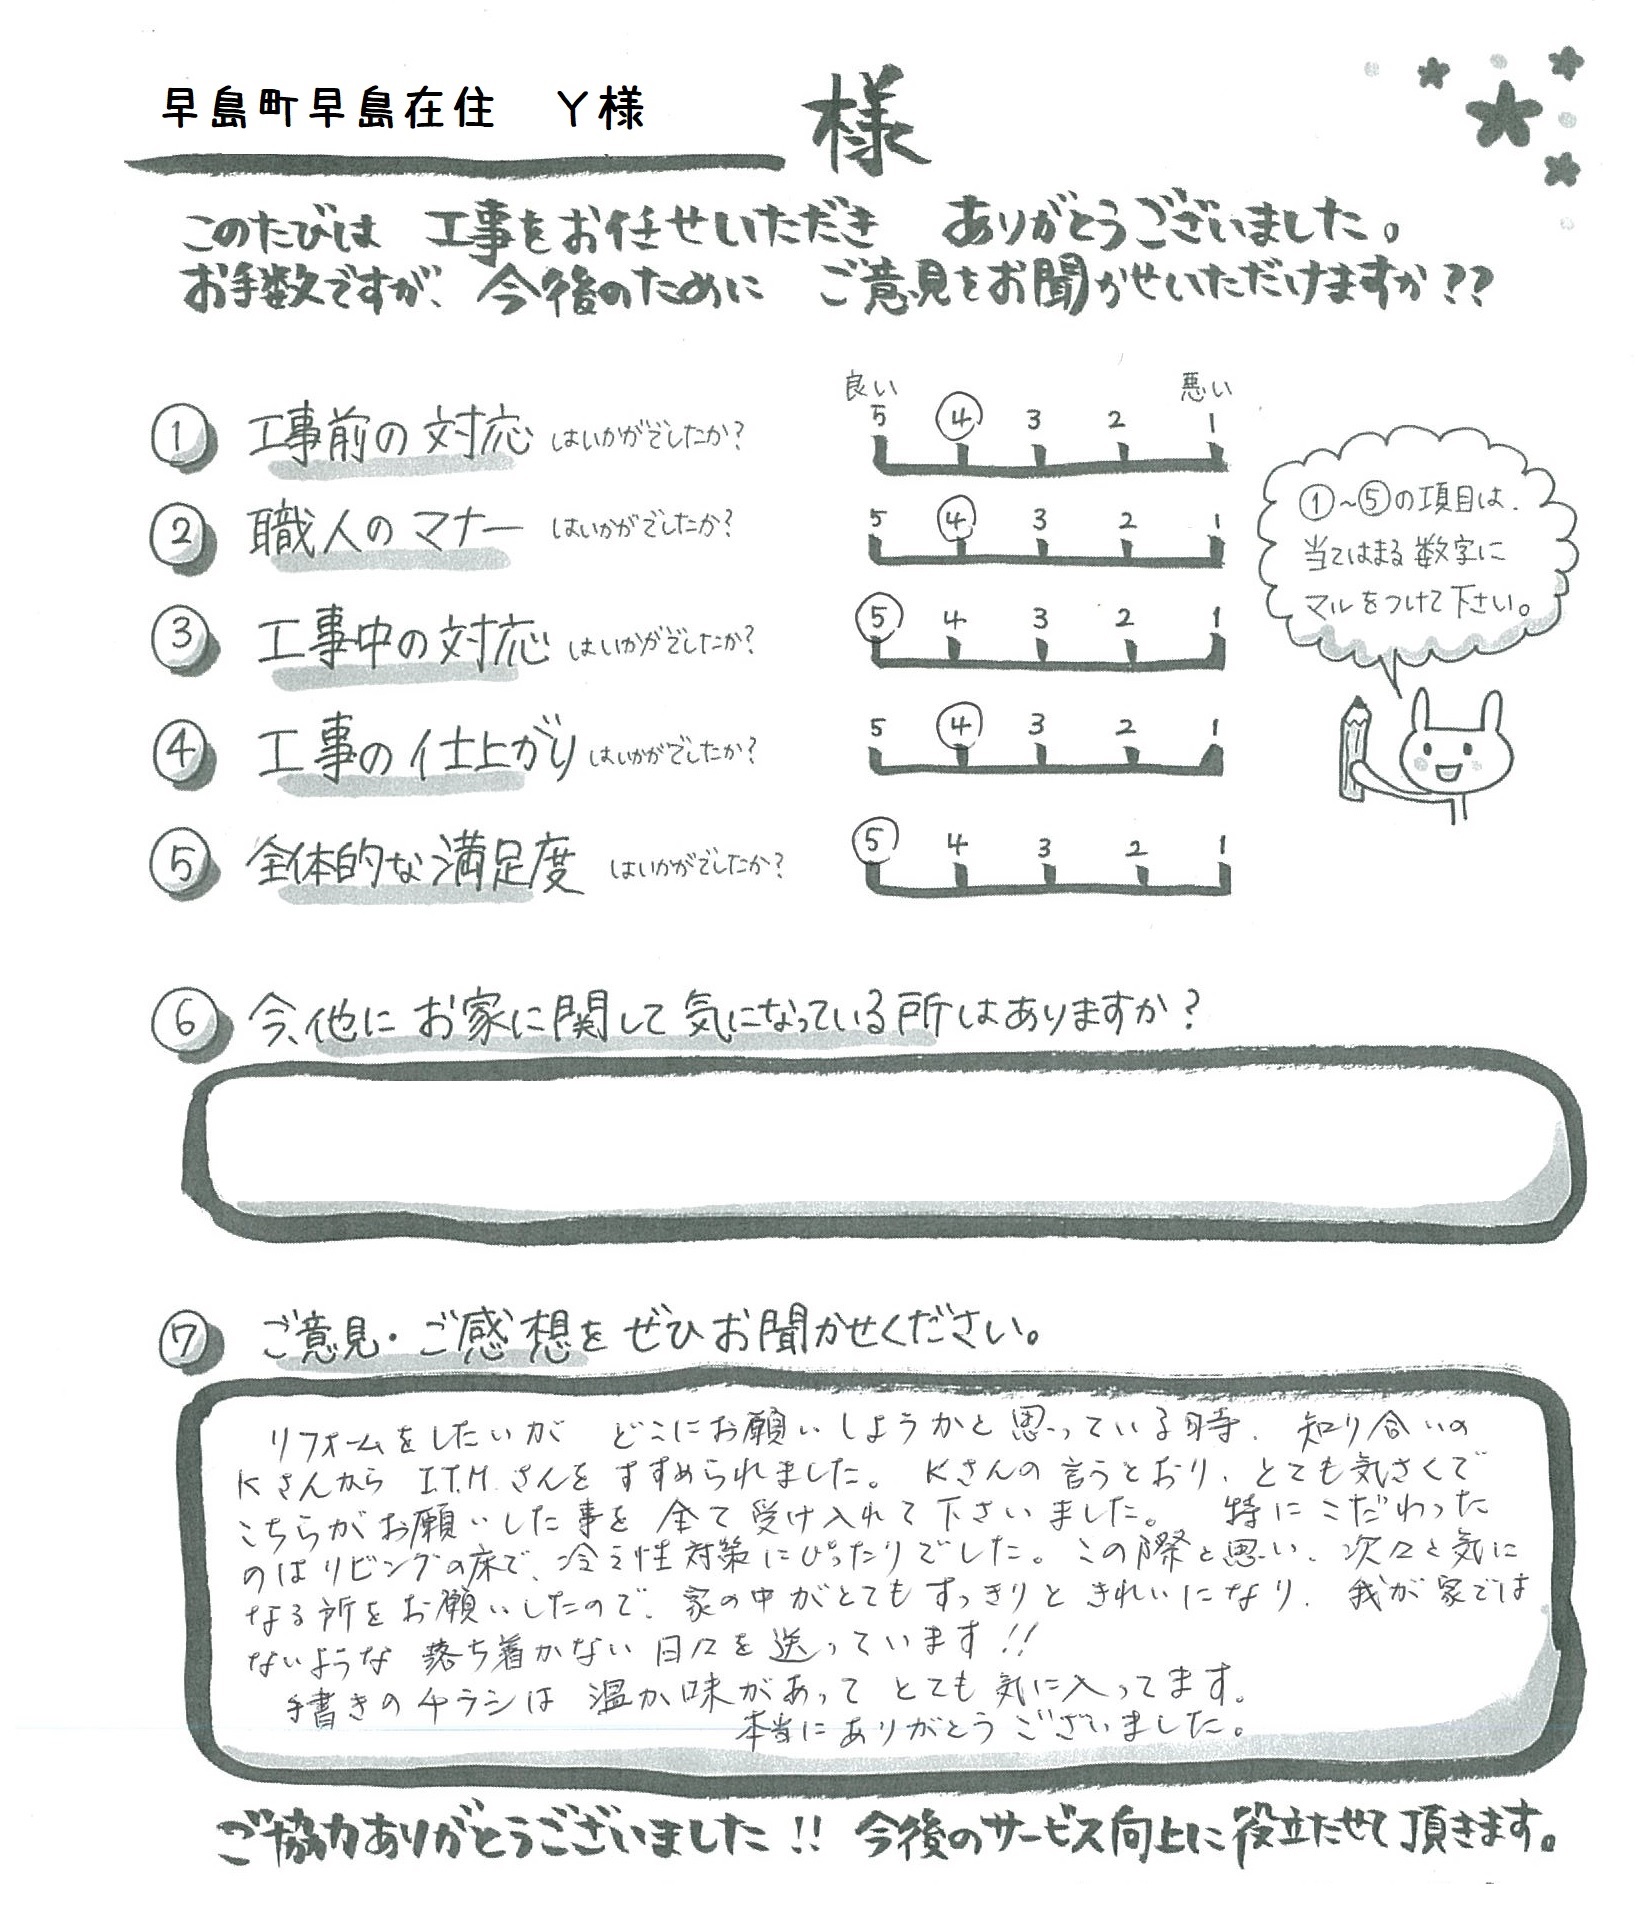 早島町早島在住 Y様 様
このたびは 工事をお任せいただき ありがとうございました。
お手数ですが、今後のために ご意見をお聞かせいただけますか??
良い 悪い
① 工事前の対応 はいかがでしたか? 5 4 3 2 1
② 職人のマナー はいかがでしたか? 5 4 3 2 1
③ 工事中の対応 はいかがでしたか? 5 4 3 2 1
④ 工事の仕上がり はいかがでしたか? 5 4 3 2 1
⑤ 全体的な満足度 はいかがでしたか? 5 4 3 2 1
①~⑤の項目は、
当てはまる数字に
マルをつけて下さい。
⑥ 今、他にお家に関して気になっている所はありますか?
⑦ ご意見・ご感想をぜひお聞かせください。
リフォームをしたいが どこにお願いしようかと思っている時、知り合いの
Kさんから I.T.M.さんをすすめられました。Kさんの言うとおり、とても気さくで
こちらがお願いした事を全て受け入れて下さいました。特にこだわった
のはリビングの床で、冷え性対策にぴったりでした。この際と思い、次々と気に
なる所をお願いしたので、家の中がとてもすっきりときれいになり、我が家では
ないような落ち着かない日々を送っています!!
手書きのチラシは温か味があってとても気に入ってます。
本当にありがとうございました。
ご協力ありがとうございました!! 今後のサービス向上に役立たせて頂きます。